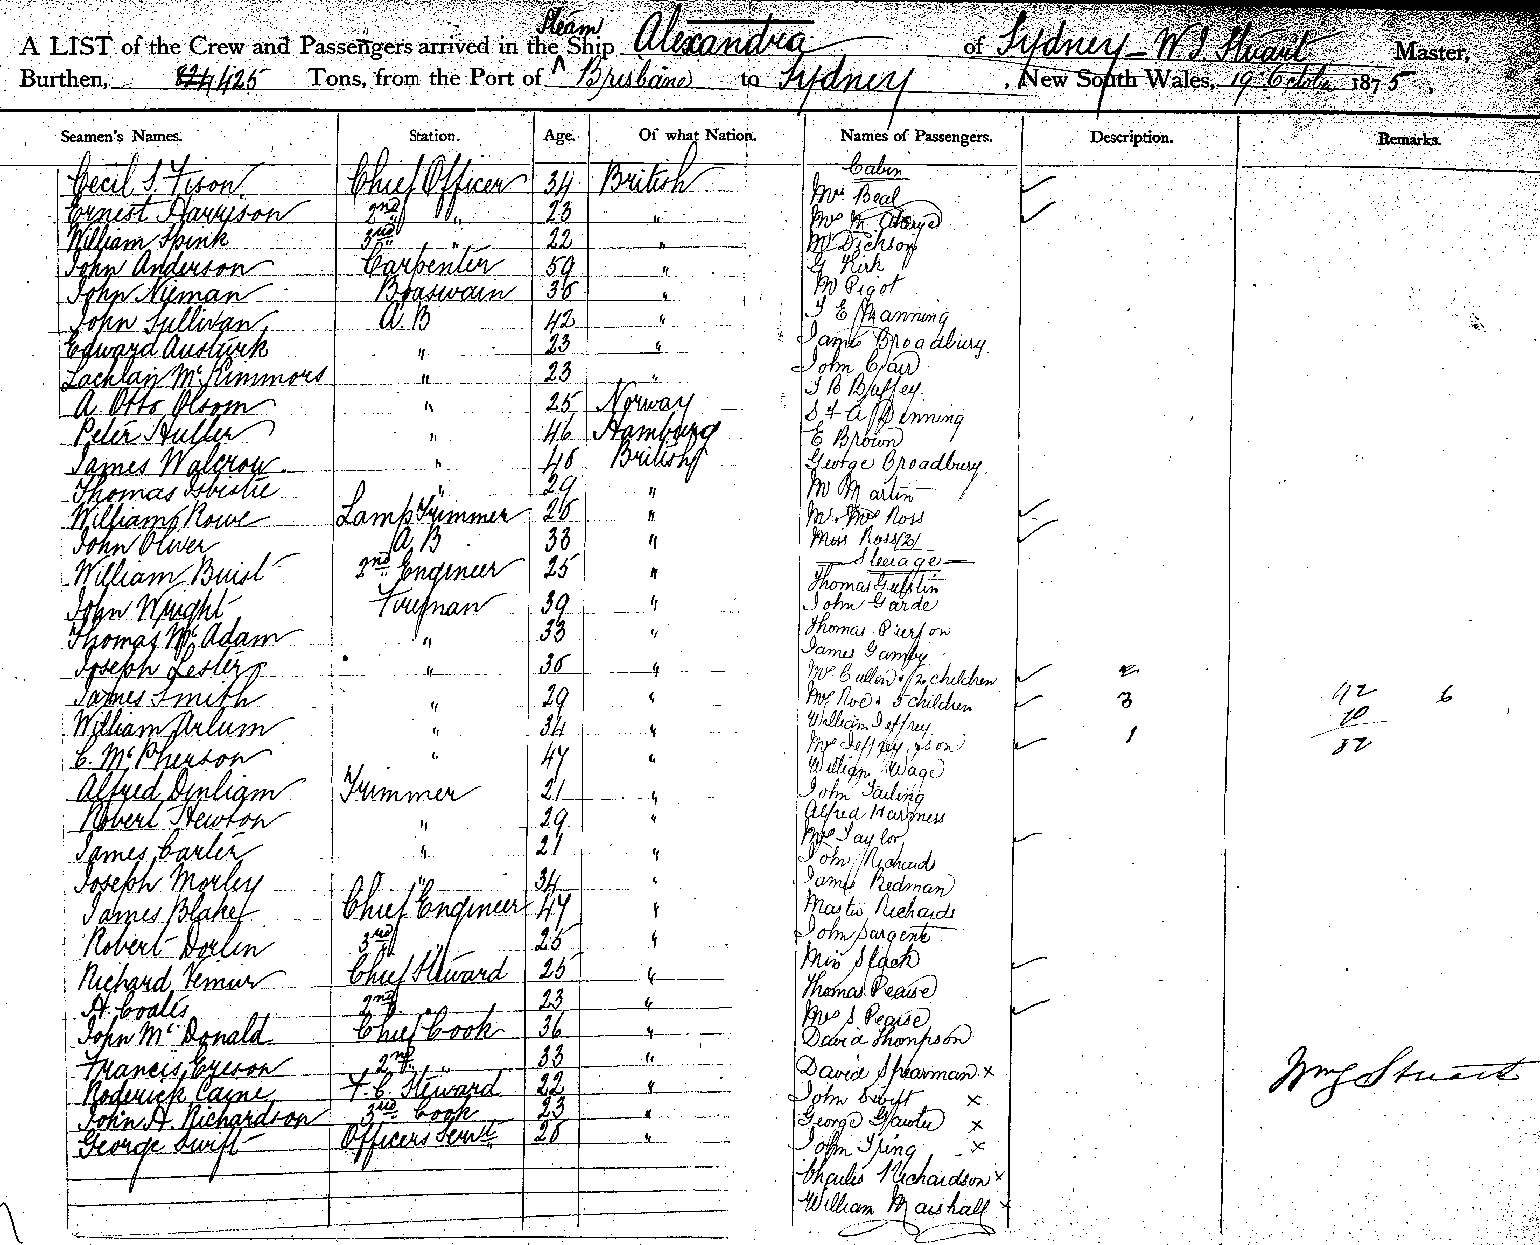 A LIST of the Crew and Passengers arrived in the Steam Ship Alexandra of Sydney - W J Stuart Master,
Burthen, 824 425 Tons, from the Port of Brisbane to Sydney, New South Wales, 19 October 1875.
Seamen's Names. Station. Age. Of what Nation. Names of Passengers. Description. Remarks.
Cabin
Cecil S. Tison Chief Officer 34 British Mrs Beal
Ernest Harrison 2nd " 23 " Mrs
William Spink 3rd " 22 " Mr Dickson
John Anderson Carpenter 59 " G Kirk
John Nieman Boaswain 36 " Mr Pigot
John Sullivan A B 42 " J E Manning
Edward Austurk " 23 " James Broadbury
Lachlan McKimmors " 23 " John Clair
A. Otto Olsom " 25 Norway J B Buffey
Peter Huller " 46 Hamburg S & A Denning
James Walcrow " 46 British E Brown
Thomas Isbistie " 29 " George Broadbury
William Rowe Lamp Trimmer 26 " Mr Martin
Mr & Mrs Ross
John Oliver A B 33 " Miss Ross (2)
Steerage
William Buist 2nd Engineer 25 " Thomas
John Wright Fireman 39 " John Garde
Thomas McAdam " 33 " Thomas Pierson
James Gamby
Joseph Lester " 36 " Mrs Cullen & 2 children 2
James Smith " 29 " Mrs Roe & 3 children 3 42 6
William Arlum " 34 " William Jeffrey 10
C. McPherson " 47 " Mrs Jeffrey & son 1 52
William Wage
Alfred Dinliam Trimmer 21 " John Tailing
Robert Hewton " 29 " Alfred Harness
Mrs Taylor
James Carter " 21 " John Richards
Joseph Morley " 34 " James Redman
James Blake Chief Engineer 47 " Master Richards
Robert Dorlin 3rd " 25 " John Sargent
Richard Vemur Chief Steward 25 " Miss Slack
H. Coates 2nd " 23 " Thomas Pearse
Mrs S Pearse
John McDonald Chief Cook 36 " David Thompson
Francis Ereson 2nd " 33 " David Spearman x
Roderick Caine F. C. Steward 22 " John Swift x
John A. Richardson 3rd Cook 23 " George x
George Swift Officers Servt 26 " John x
Charles Richardson x
William Marshall x
Wm J Stuart